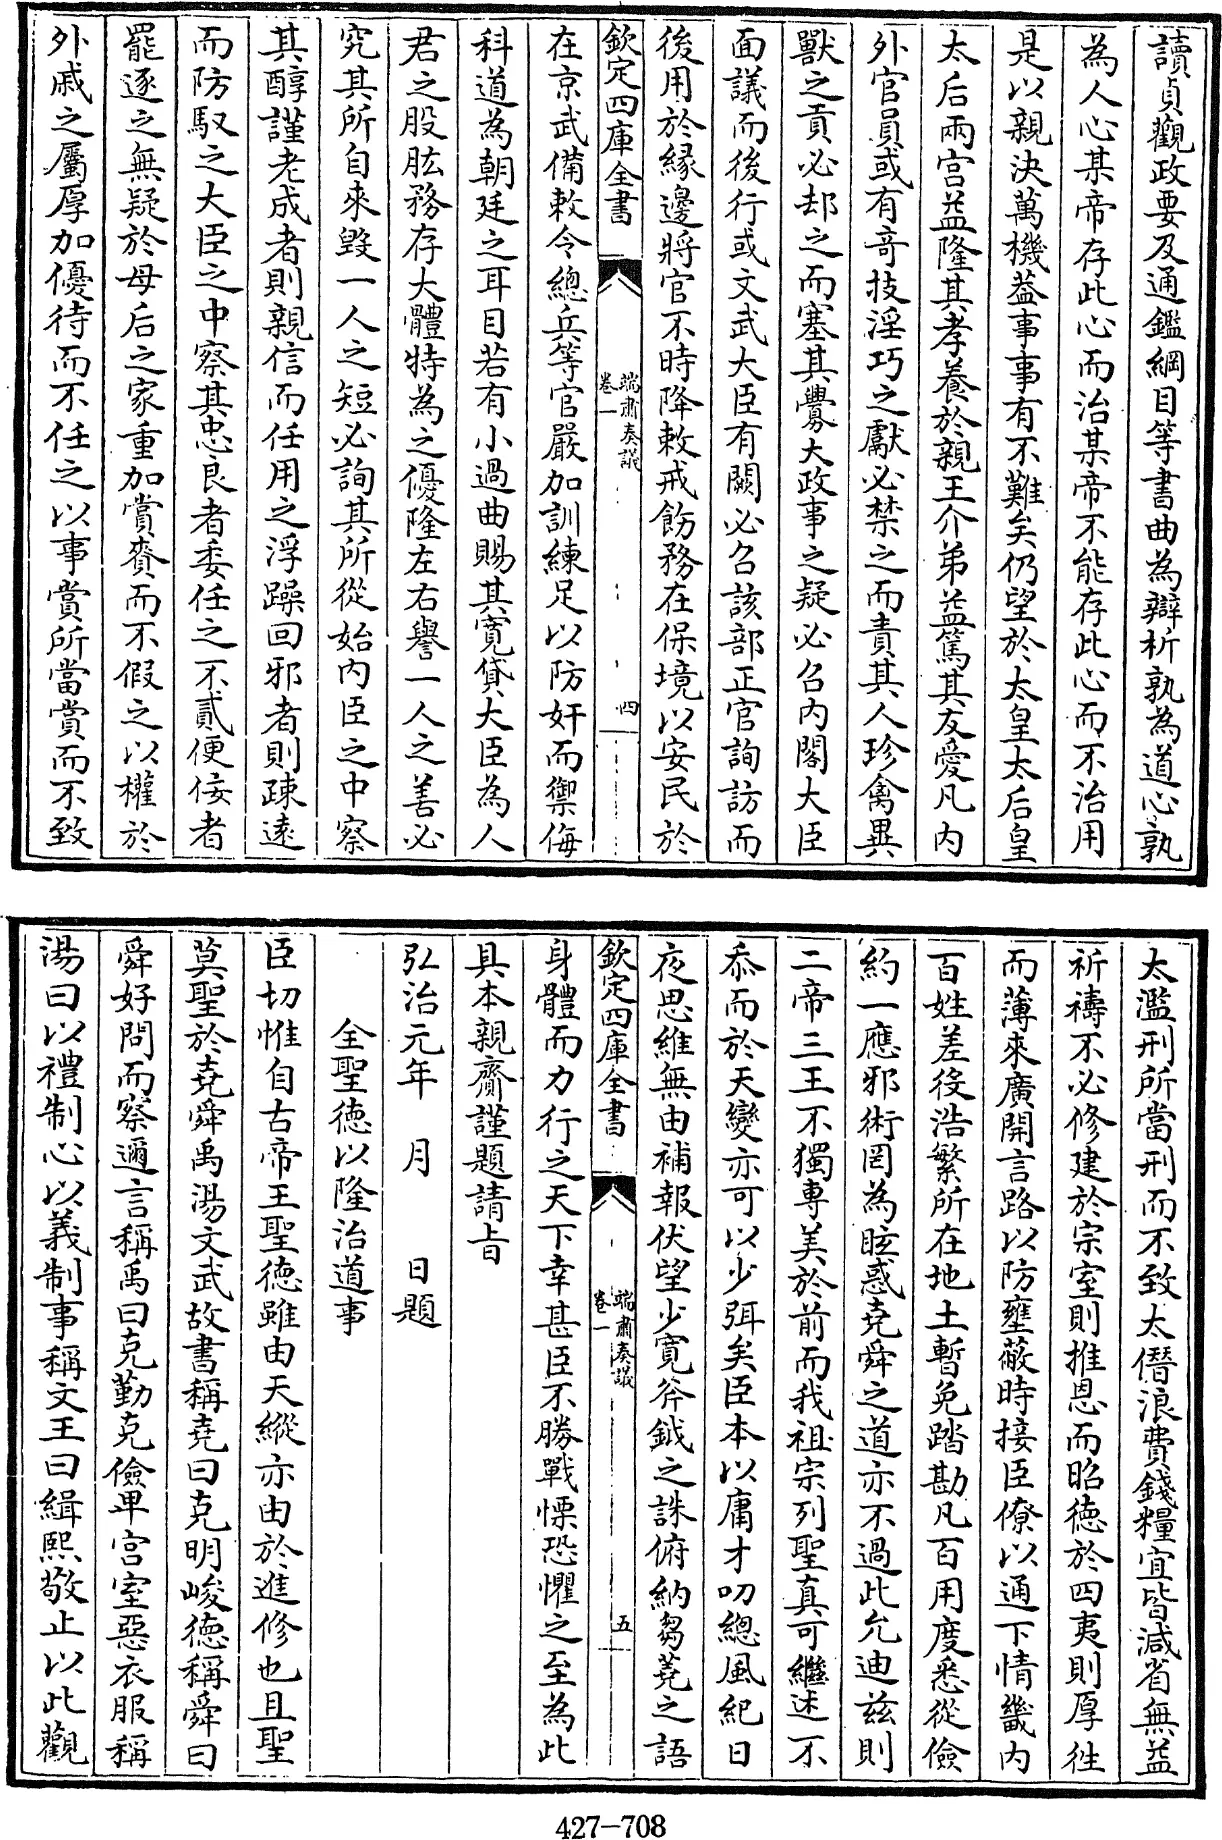 讀貞觀政要及通鑑綱目等書曲為辯析孰為道心孰
為人心某帝存此心而治某帝不能存此心而不治用
是以親決萬機蓋事事有不難矣仍望於太皇太后皇
太后兩宫益隆其孝養於親王介弟益篤其友愛凡内
外官員或有竒技淫巧之獻必禁之而責其人珍禽異
獸之貢必却之而塞其釁大政事之疑必召内閣大臣
面議而後行或文武大臣有闕必召該部正官詢訪而
後用於緣邊將官不時降敕戒飭務在保境以安民於
欽定四庫全書
端肅奏議
卷一
四
在京武備敕令總兵等官嚴加訓練足以防奸而禦侮
科道為朝廷之耳目若有小過曲賜其寛貸大臣為人
君之股肱務存大體特為之優隆左右譽一人之善必
究其所自來毁一人之短必詢其所從始内臣之中察
其醇謹老成者則親信而任用之浮躁回邪者則疎遠
而防馭之大臣之中察其忠良者委任之不貳便佞者
罷逐之無疑於母后之家重加賞賚而不假之以權於
外戚之屬厚加優待而不任之以事賞所當賞而不致
太濫刑所當刑而不致太僭浪費錢糧宜皆減省無益
祈禱不必修建於宗室則推恩而昭徳於四夷則厚徃
而薄來廣開言路以防壅蔽時接臣僚以通下情畿内
百姓差役浩繁所在地土暫免踏勘凡百用度悉從儉
約一應邪術罔為眩惑堯舜之道亦不過此允迪兹則
二帝三王不獨專美於前而我祖宗列聖真可繼述不
忝而於天變亦可以少弭矣臣本以庸才叨總風紀日
夜思維無由補報伏望少寛斧鉞之誅俯納芻蕘之語
欽定四庫全書
端肅奏議
卷一
五
身體而力行之天下幸甚臣不勝戰慄恐懼之至為此
具本親齎謹題請㫖
弘治元年　月　日題
全聖徳以隆治道事
臣切惟自古帝王聖徳雖由天縱亦由於進修也且聖
莫聖於堯舜禹湯文武故書稱堯曰克明峻徳稱舜曰
舜好問而察邇言稱禹曰克勤克儉卑宫室惡衣服稱
湯曰以禮制心以義制事稱文王曰緝熙敬止以此觀
427-708